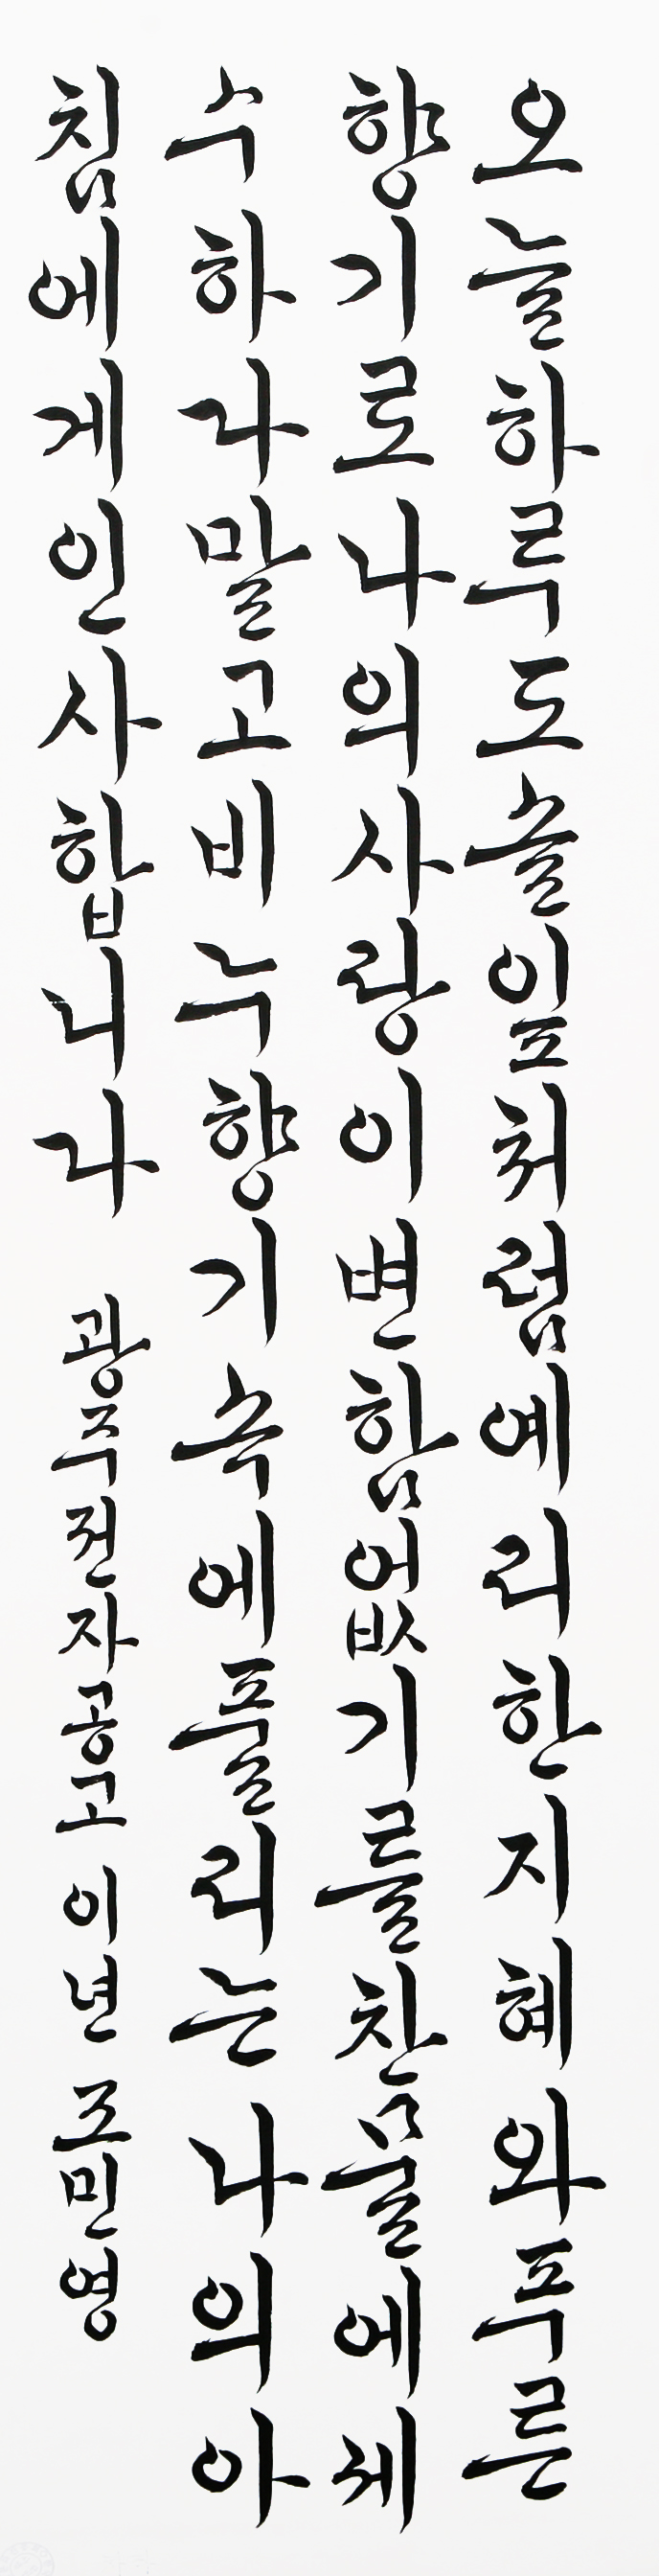 오늘하루도솔잎처럼예리한지혜와푸른
향기로나의사랑이변함없기를찬물에세
수하다말고비누향기속에풀리는나의아
침에게인사합니다 광주전자공고 이년 조민영